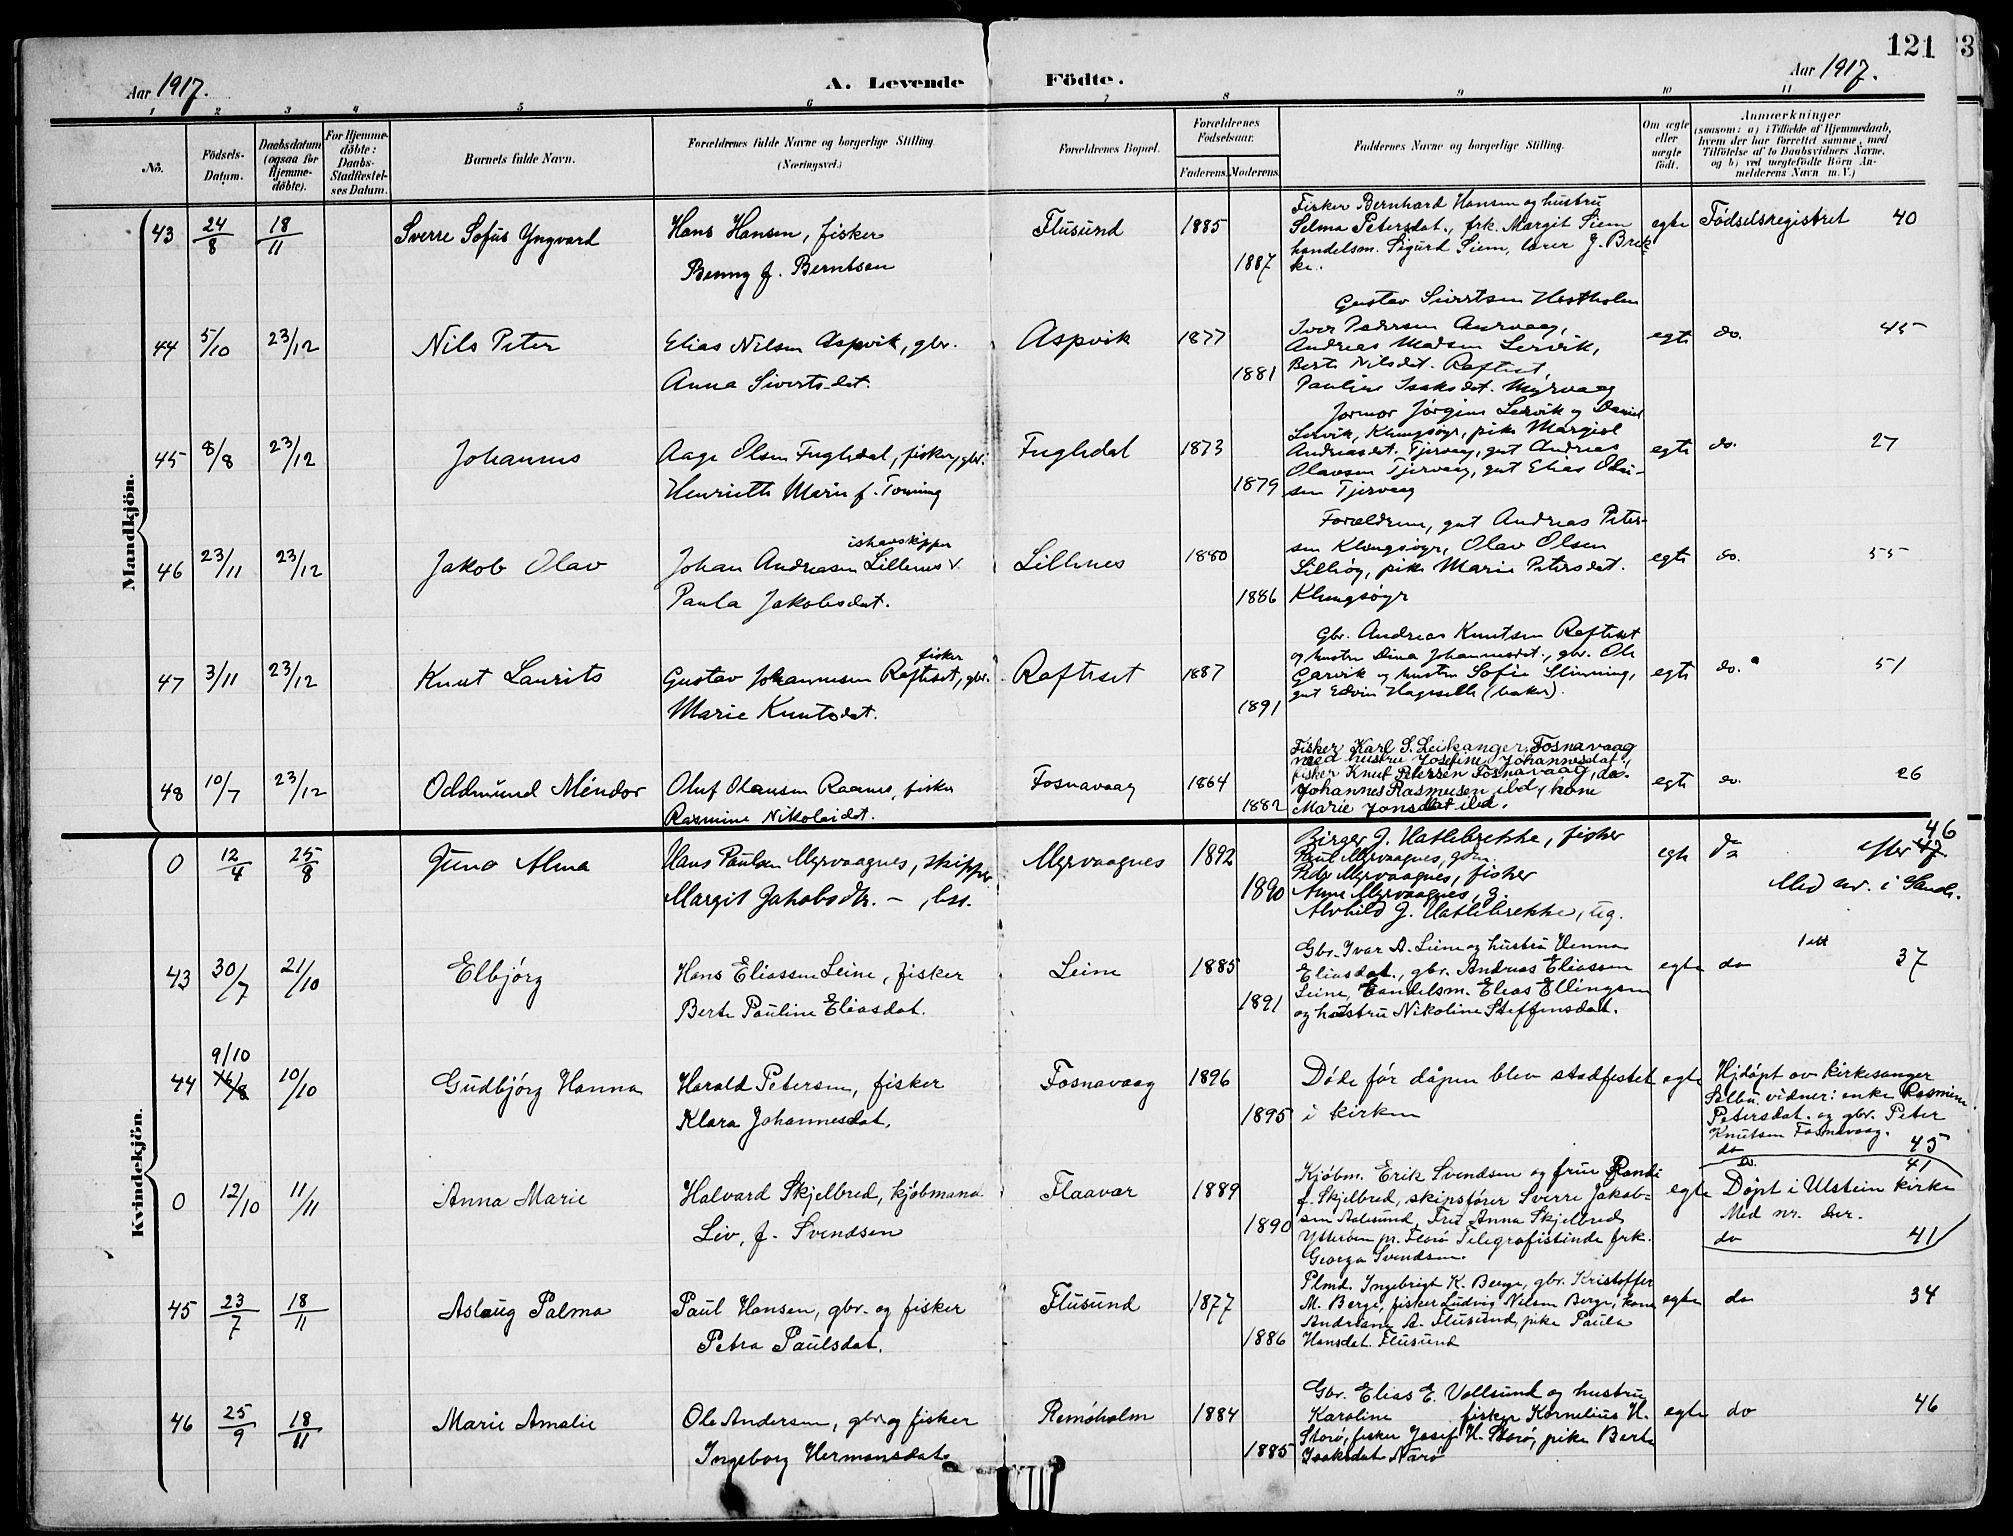 121
3
Aar 1917.
A. Levende Födte.
Aar 1917.
1 2 3 4 5 6 7 8 9 10 11
No.
Födsels-Datum.
Daabsdatum (ogsaa for Hjemme-döbte).
For Hjemme-döbte: Daabs-Stadfæstel-ses Datum.
Barnets fulde Navn.
Forældrenes fulde Navne og borgerlige Stilling (Næringsvei.)
Forældrenes Bopæl.
Forældrenes Födselsaar.
Faderens. Moderens.
Faddernes Navne og borgerlige Stilling.
Om ægte eller uægte födt.
Anmærkninger
(saasom: a) i Tilfælde af Hjemmedaab,
hvem der har forrettet samme, med
Tilföielse af to Daabsvidners Navne,
og b) ved uægtefödte Börn An-
melderens Navn m. V.)
Mandkjön.
43 24/8 18/11 Sverre Sofus Yngvard
Hans Hansen, fisker
Benny f. Berntsen
Flusund 1885
1887
Fisker Bernhard Hansen og hustru
Selma Petersdat., frk. Margit Siem
handelsm. Sigurd Siem, lærer J. Brek-
ke.
egte Fødselsregistret 40
44 5/10 23/12 Nils Peter
Elias Nilsen Aspvik, gbr.
Anna Sivertsdat.
Aspvik 1877
1881
Gustav Sivertsen Hestholm
Iver Pedersen Aurvaag,
Andreas Madsen Lervik,
Berte Nilsdat. Raftset,
Pauline Isaksdat. Myrvaag
egte do. 45
45 8/8 23/12 Johannes
Aage Olsen Fugledal, fisker, gbr.
Henriette Marie f. Tonning
Fugledal 1873
1879
Jormor Jørgine Lervik og Daniel
Lervik, Klungsøyr, pike Margide
Andreasdat. Tjervaag, gut Andreas
Olavsen Tjervaag, gut Elias Olav-
sen Tjervaag
egte do. 27
46 23/11 23/12 Jakob Olav
ishavskipper
Johan Andreasen Lillenes
Paula Jakobsdat.
Lillenes 1880
1886
Forældrene, gut Andreas Peter-
sen Klungsøyr, Olav Olsen
Lilleøy, pike Marie Petersdat.
Klungsøyr
egte do. 55
47 3/11 23/12 Knut Laurits
fisker
Gustav Johannesen Raftset, gbr.
Marie Knutsdat.
Raftset 1887
1891
Gbr. Andreas Knutsen Raftset
og hustru Dina Johannesdat., gbr. Ole
Garvik og hustru Sofie Slinning,
gut Edvin Hageselle (baker).
egte do. 51
48 10/7 23/12 Oddmund Méndor
Oluf Olausen Raanes, fisker
Rasmine Nikolaidat.
Fosnavaag 1864
1882
Fisker Karl S. Leikanger, Fosnavaag
med hustru Josefine Johannesdat.,
fisker Knut Petersen Fosnavaag, do.
Johannes Rasmusen ibd, kone
Marie Jonsdat ibd.
egte do. 26
Kvindekjön.
0 12/4 25/8 Juno Alma
Hans Paulsen Myrvaagnes, skipper
Margit Jakobsdtr. –, hst.
Myrvaagnes 1892
1890
Birger J. Hatlebrekke, fisker
Paul Myrvaagnes, gdm.
Peder Myrvaagnes, fisker
Anne Myrvaagnes, g.
Alvhild J. Hatlebrekke, ug.
egte do efter 47 46
Med nr. i Sande.
43 30/7 21/10 Elbjørg
Hans Eliassen Leine, fisker
Berte Pauline Eliasdat.
Leine 1885
1891
Gbr. Ivar A. Leine og hustru Hanna
Eliasdat., gbr. Andreas Eliassen
Leine, handelsm. Elias Ellingsen
og hustru Nikoline Steffensdat.
egte do 37
44 9/10 16/8 10/10 Gudbjørg Hanna
Harald Petersen, fisker
Klara Johannesdat.
Fosnavaag 1896
1895
Døde før dåpen blev stadfestet
i kirken
egte Hjdøpt av kirkesanger
Sælbu. vidner: enke Rasmine
Petersdat. og gbr. Peter
Knutsen Fosnavaag.
do 45
0 12/10 11/11 Anna Marie
Halvard Skjelbred, kjøbmand
Liv, f. Svendsen
Flaavær 1889
1890
Kjøbm. Erik Svendsen og frue Randi
f. Skjelbred, skipsfører Sverre Jakob-
sen Aalesund, Fru Anna Skjelbred
Ytterøen pr. Florø Telegrafistinde frk.
Georga Svendsen.
egte do. 41
Døpt i Ulstein kirke
Med nr. der.
do 41
45 23/7 18/11 Aslaug Palma
Paul Hansen, gbr. og fisker
Petra Paulsdat.
Flusund 1877
1886
Plmd. Ingebrigt K. Berge, gbr. Kristoffer
M. Berge, fisker Ludvig Nilsen Berge, kone
Andreane A. Flusund, pike Paula
Hansdat. Flusund
egte do 34
46 25/9 18/11 Marie Amalie
Ole Andersen, gbr og fisker
Ingeborg Hermansdat.
Remøholm 1884
1885
Gbr. Elias E. Vollsund og hustru
Karoline fisker Kornelius H.
Storø, fisker Josef H. Storø, pike Berte
Isaksdat Nærø
egte do 46